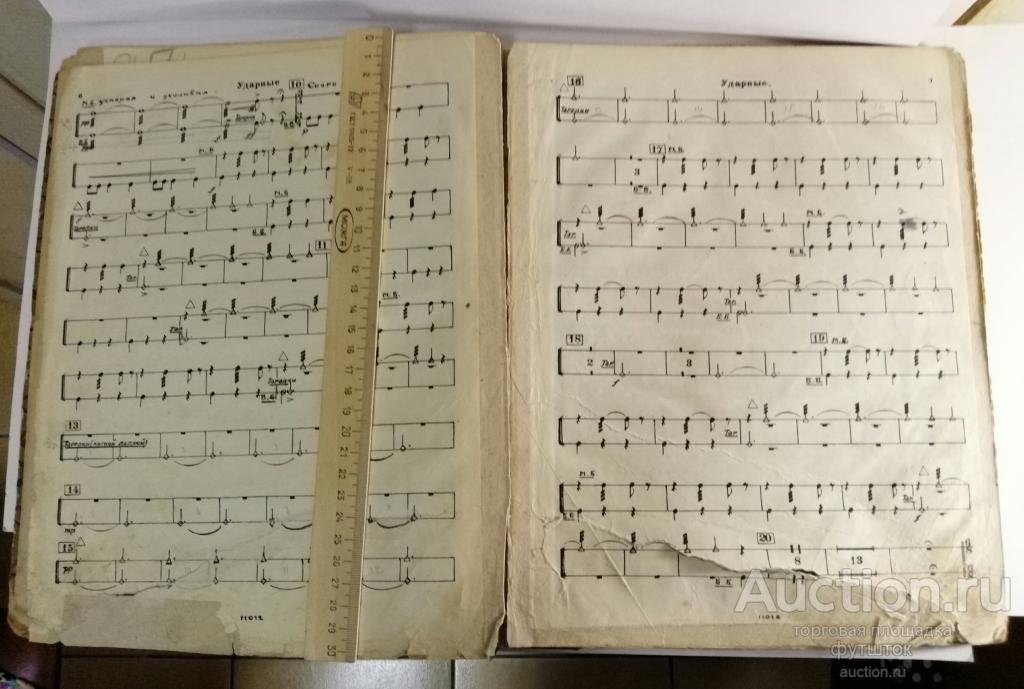 6
Ударные
10
М.Б.
М.Б.
Тарелки
Б.Б.
11
Тар.
М.Б.
Тар.
Тарелки
Б.Б.
13
14
mp
15
pp
11012
0
1
2
3
4
5
6
7
8
9
10
МОЖГА
11
12
13
14
15
16
17
18
19
20
21
22
23
24
25
26
27
28
29
30
Ударные.
7
16
Тарелки
17 М.Б.
3
Б.Б.
М.Б.
Тар.
Б.Б.
Б.Б.
Тар.
Б.Б.
18
19 М.Б.
2 Тар.
3
f
Б.Б.
Тар.
М.Б.
Тар.
Б.Б.
f
20
8
13
Б.Б.
11012
Auction.ru
торговая площадка
футшток
auction.ru